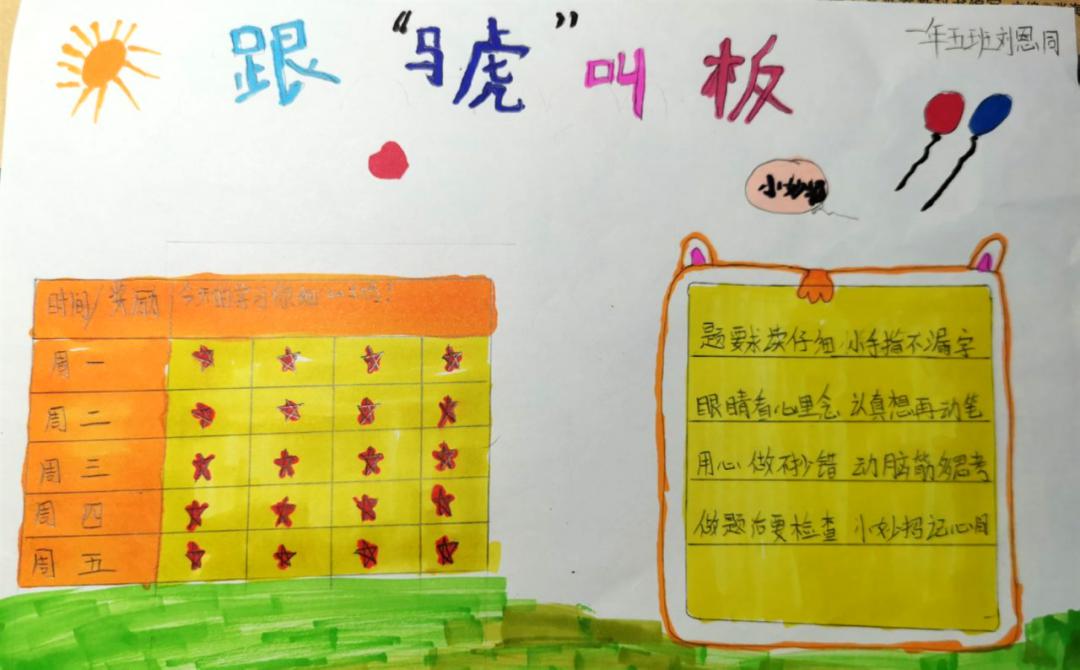 跟“马虎”叫板
一年五班刘恩同
小妙招
时间/奖励 今天的学习你细心了吗？
周一
周二
周三
周四
周五
题要求读仔细 小手指不漏字
眼睛看心里念 认真想再动笔
用心做不抄错 动脑筋多思考
做题后要检查 小妙招记心间